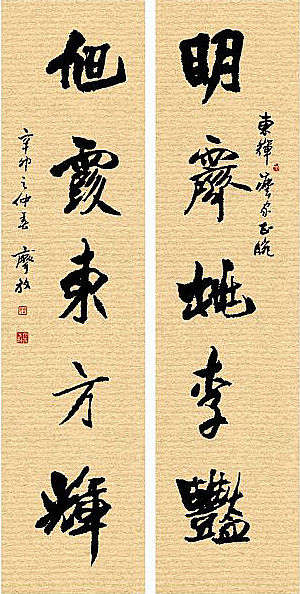 明霽桃李豔
東輝家正腕
旭霞東方輝
辛卯之仲春